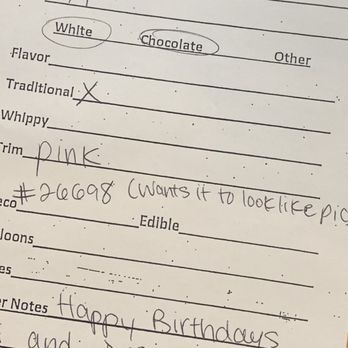 White Chocolate Other
Flavor
Traditional X
Whippy
Trim pink
#26698 (Wants it to look like pic
eco Edible
loons
es
er Notes Happy Birthdays
and